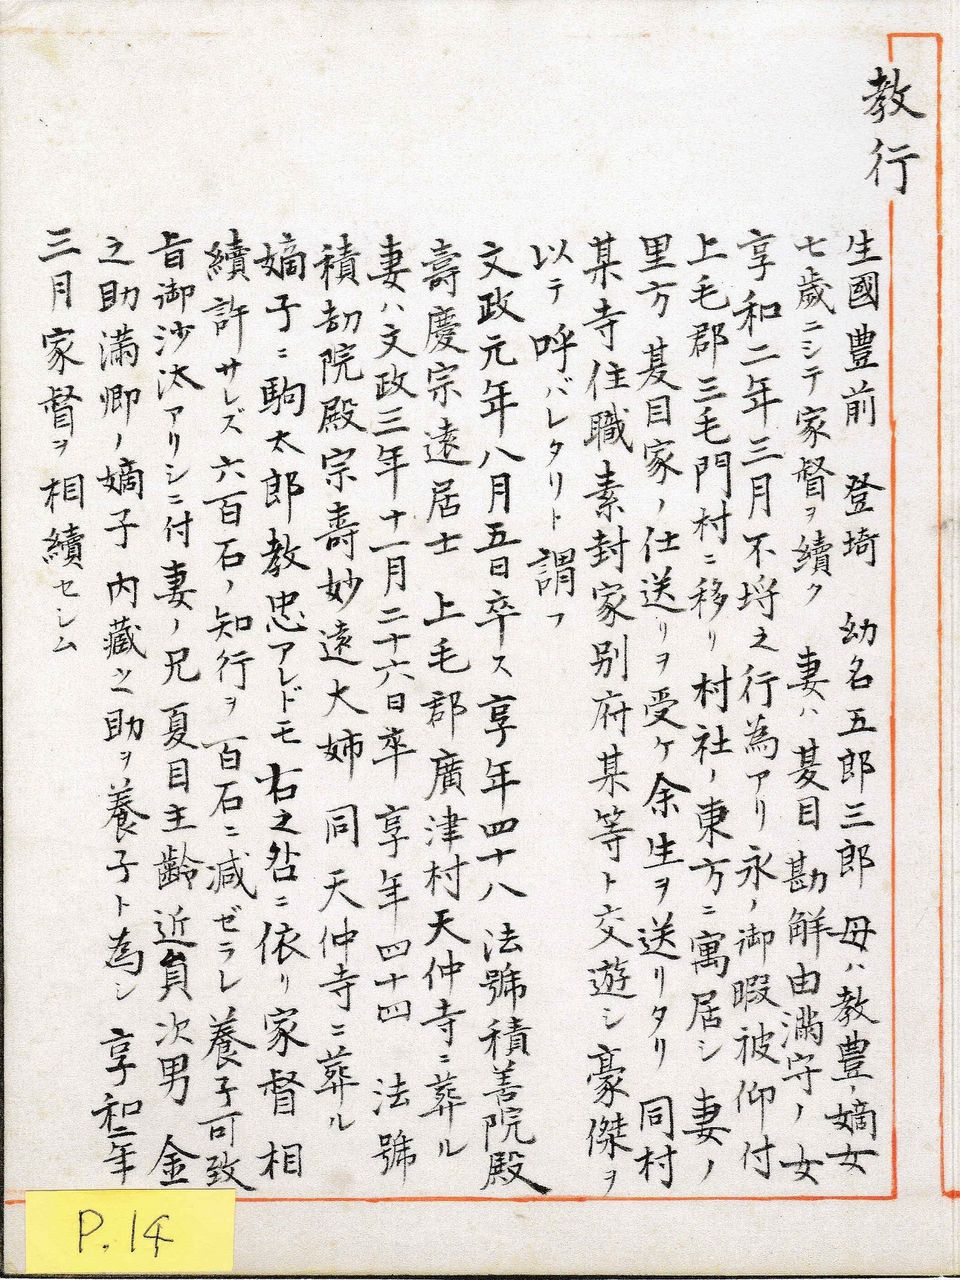 教行
生國豊前　登埼　幼名五郎三郎　母ハ教豊ノ嫡女
七歳ニシテ家督ヲ續ク　妻ハ夏目勘解由満守ノ女
享和二年三月不埒之行為アリ永ノ御暇被仰付
上毛郡三毛門村ニ移リ村社ノ東方ニ寓居シ妻ノ
里方夏目家ノ仕送リヲ受ケ余生ヲ送リタリ　同村
某寺住職素封家別府某等ト交遊シ豪傑ヲ
以テ呼バレタリト謂フ
文政元年八月五日卒ス享年四十八　法號積善院殿
壽慶宗遠居士　上毛郡廣津村天仲寺ニ葬ル
妻ハ文政三年十一月二十六日卒　享年四十四　法號
積劫院殿宗壽妙遠大姉　同天仲寺ニ葬ル
嫡子ニ駒太郎教忠アレドモ右之咎ニ依リ家督相
續許サレズ六百石ノ知行ヲ一百石ニ減ゼラレ養子可致
旨御沙汰アリシニ付妻ノ兄夏目主齢近員次男　金
之助満卿ノ嫡子内藏之助ヲ養子ト為シ　享和二年
三月家督ヲ相續セシム
P.14